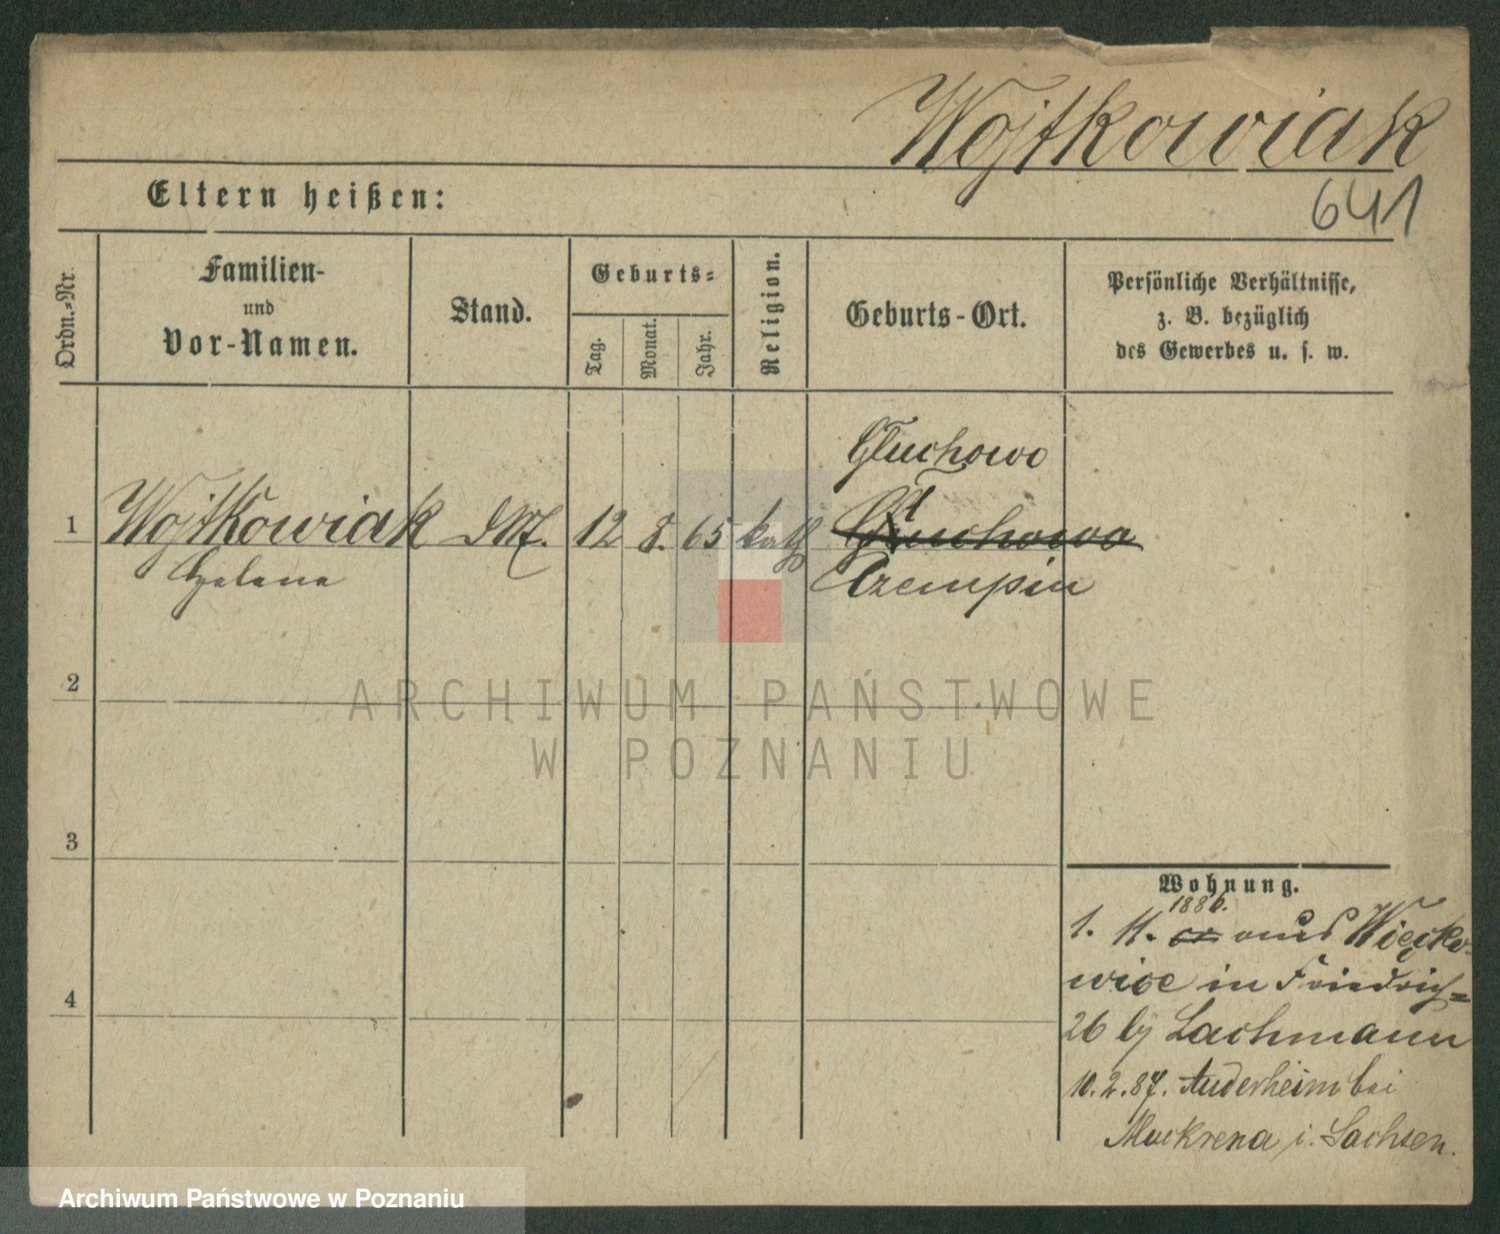 Wojtkowiak
641
Eltern heißen:
Ordn.-Nr.
Familien-
und
Vor-Namen.
Stand.
Geburts-
Tag.
Monat.
Jahr.
Religion.
Geburts-Ort.
Persönliche Verhältnisse,
z. B. bezüglich
des Gewerbes u. s. w.
Gluchowo
1 Wojtkowiak DM. 12 8. 65 kath Gluchowo
Helena Czempin
2
3
4
Wohnung.
1886.
1. 11. aus Więcko-
wice in Friedrich=
26 by Lachmann
10. 2. 87. Auderheim bei
Muckrena i. Sachsen.
ARCHIWUM PAŃSTWOWE
W POZNANIU
Archiwum Państwowe w Poznaniu